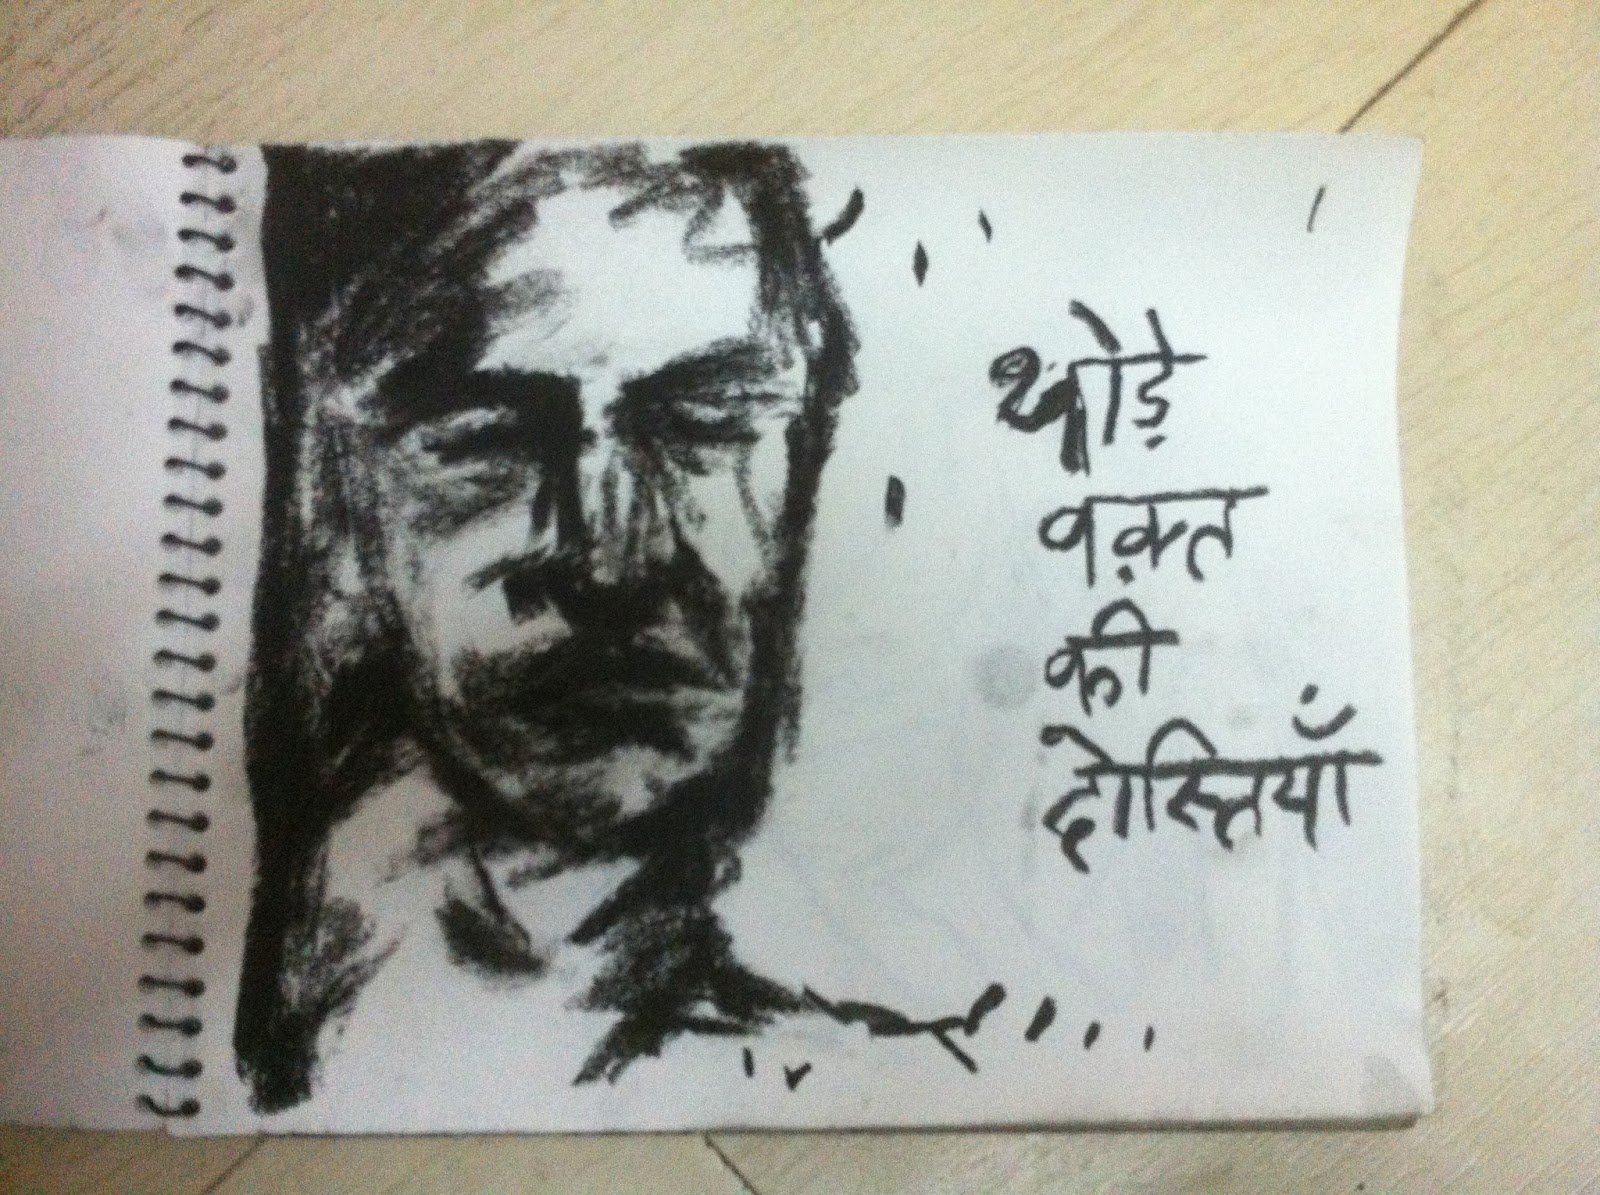 थोड़े
वक़्त
की
दोस्तियाँ